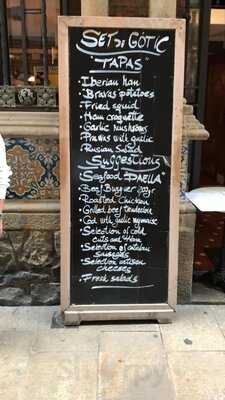 SET de GÒTIC
"TAPAS"
· Iberian ham
· Bravas potatoes
· Fried squid
· Ham croquette
· Garlic mushrooms
· Prawns with garlic
· Russian Salad
SUGGESTIONS
· Seafood PAELLA
· Beef Burger 200g
· Roasted Chicken
· Grilled beef tenderloin
· Cod with garlic
· Selection of cold
cuts and
· Selection of catalan
sausages
· Selection artisan
cheeses
· Fresh salads